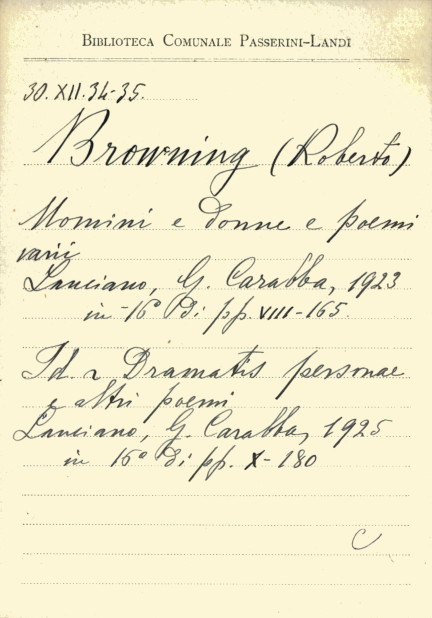 BIBLIOTECA COMUNALE PASSERINI-LANDI
30.XII.34-35.
Browning (Roberto)
Uomini e donne e poemi
varii
Lanciano, G. Carabba, 1923
in-16° di pp. VIII-165.
Id. Dramatis personae
e altri poemi
Lanciano, G. Carabba, 1925
in 16° di pp. X-180
C